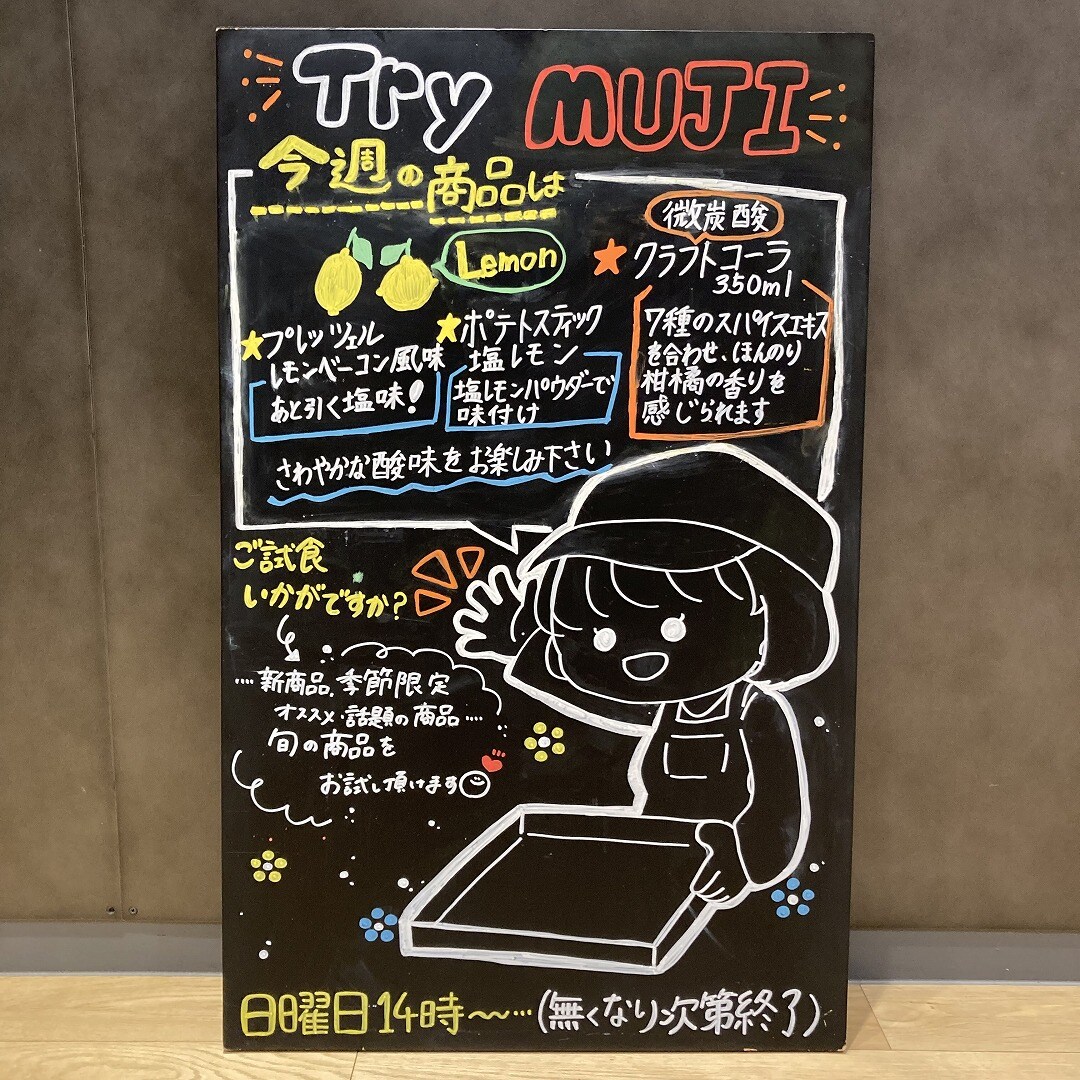 Try MUJI
今週の商品は
Lemon
★プレッツェル
レモンベーコン風味
あと引く塩味!
★ポテトスティック
塩レモン
塩レモンパウダーで
味付け
微炭酸
★クラフトコーラ
350ml
7種のスパイスエキス
を合わせ、ほんのり
柑橘の香りを
感じられます
さわやかな酸味をお楽しみ下さい
ご試食
いかがですか?
…新商品、季節限定
オススメ・話題の商品…
旬の商品を
お試し頂けます
日曜日14時〜…(無くなり次第終了)